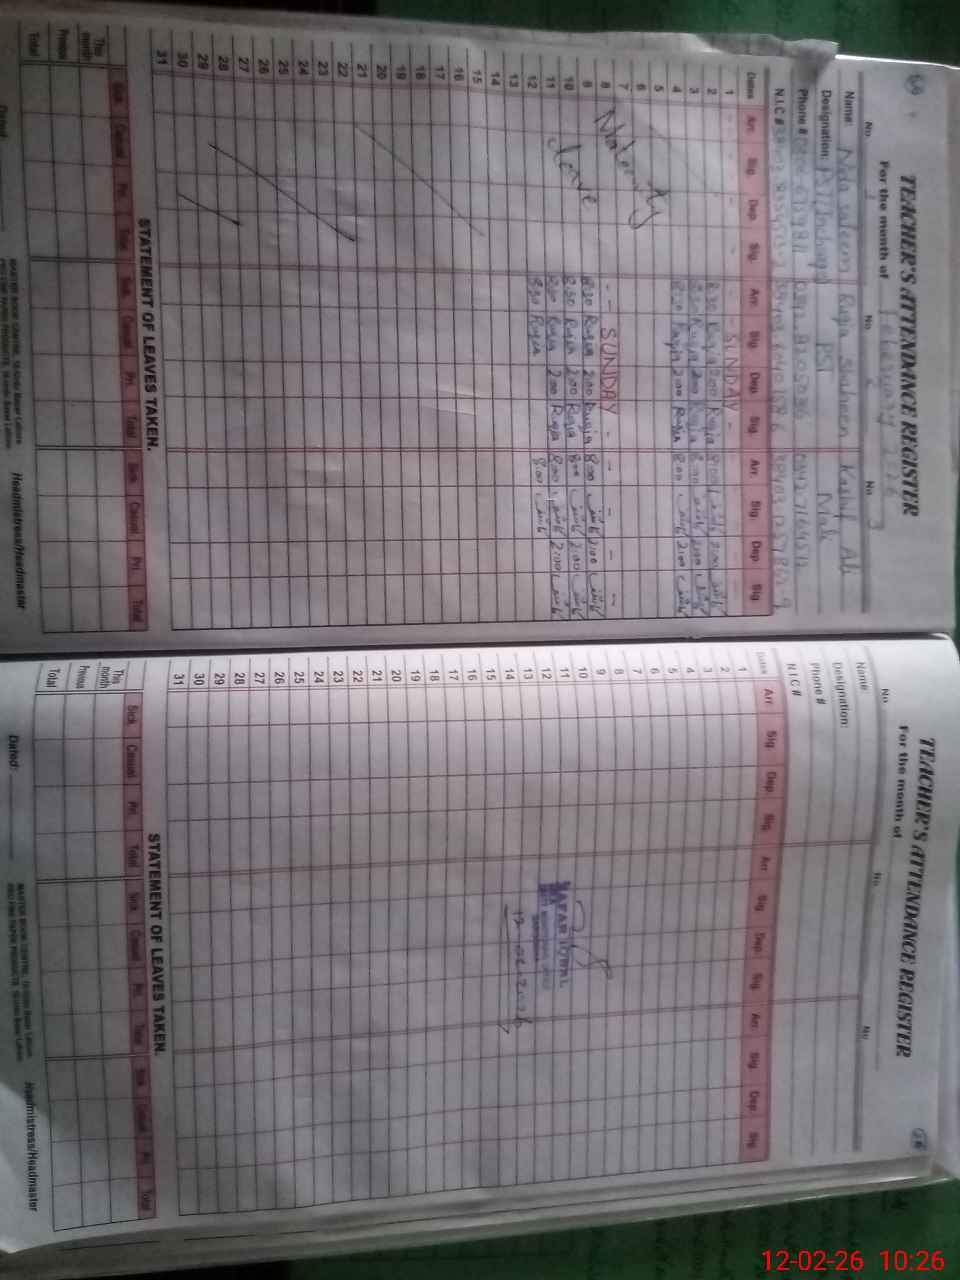 TEACHER'S ATTENDANCE REGISTER
For the month of February 2026
No. 1 No. 2 No. 3
Name: Nida Saleem Ruqia Shaheen Kashif Ali
Designation: PST Mali
Phone #
N.I.C #
Dates Arr. Sig. Dep. Sig. Arr. Sig. Dep. Sig. Arr. Sig. Dep. Sig.
1 SUNDAY
2 8:30 Ruqia 2:00 Ruqia 8:00 کاشف 2:00 کاشف
3 8:30 Ruqia 2:00 Ruqia 8:00 کاشف 2:00 کاشف
4 8:30 Ruqia 2:00 Ruqia 8:00 کاشف 2:00 کاشف
5
6
7
8 SUNDAY
Maternity
leave
9 8:30 Ruqia 2:00 Ruqia 8:00 کاشف 2:00 کاشف
10 8:30 Ruqia 2:00 Ruqia 8:00 کاشف 2:00 کاشف
11 8:30 Ruqia 2:00 Ruqia 8:00 کاشف 2:00 کاشف
12 8:30 Ruqia 8:00 کاشف
13
14
15
16
17
18
19
20
21
22
23
24
25
26
27
28
29
30
31
STATEMENT OF LEAVES TAKEN.
Sick Casual Pri. Total Sick Casual Pri. Total Sick Casual Pri. Total
This month
Previous
Total
Dated:
Headmistress/Headmaster
TEACHER'S ATTENDANCE REGISTER
For the month of
No. No. No.
Name:
Designation:
Phone #
N.I.C #
Dates Arr. Sig. Dep. Sig. Arr. Sig. Dep. Sig. Arr. Sig. Dep. Sig.
1
2
3
4
5
6
7
8
9
10
11
12
13
14
15
16
17
18
19
20
21
22
23
24
25
26
27
28
29
30
31
ZAFAR IQBAL
12-02-2026
STATEMENT OF LEAVES TAKEN.
Sick Casual Pri. Total Sick Casual Pri. Total Sick Casual Pri. Total
This month
Previous
Total
Dated:
Headmistress/Headmaster
12-02-26 10:26